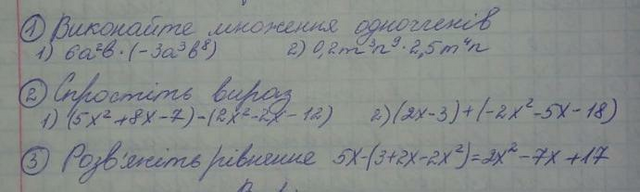 ① Виконайте множення одночленів
1) 6a²b·(-3a³b⁸) 2) 0,2m³n⁹·2,5m⁴n
② Спростіть вираз
1) (5x²+8x-7)-(2x²-2x-12) 2) (2x-3)+(-2x²-5x-18)
③ Розв'яжіть рівнение 5x-(3+2x-2x²)=2x²-7x+17